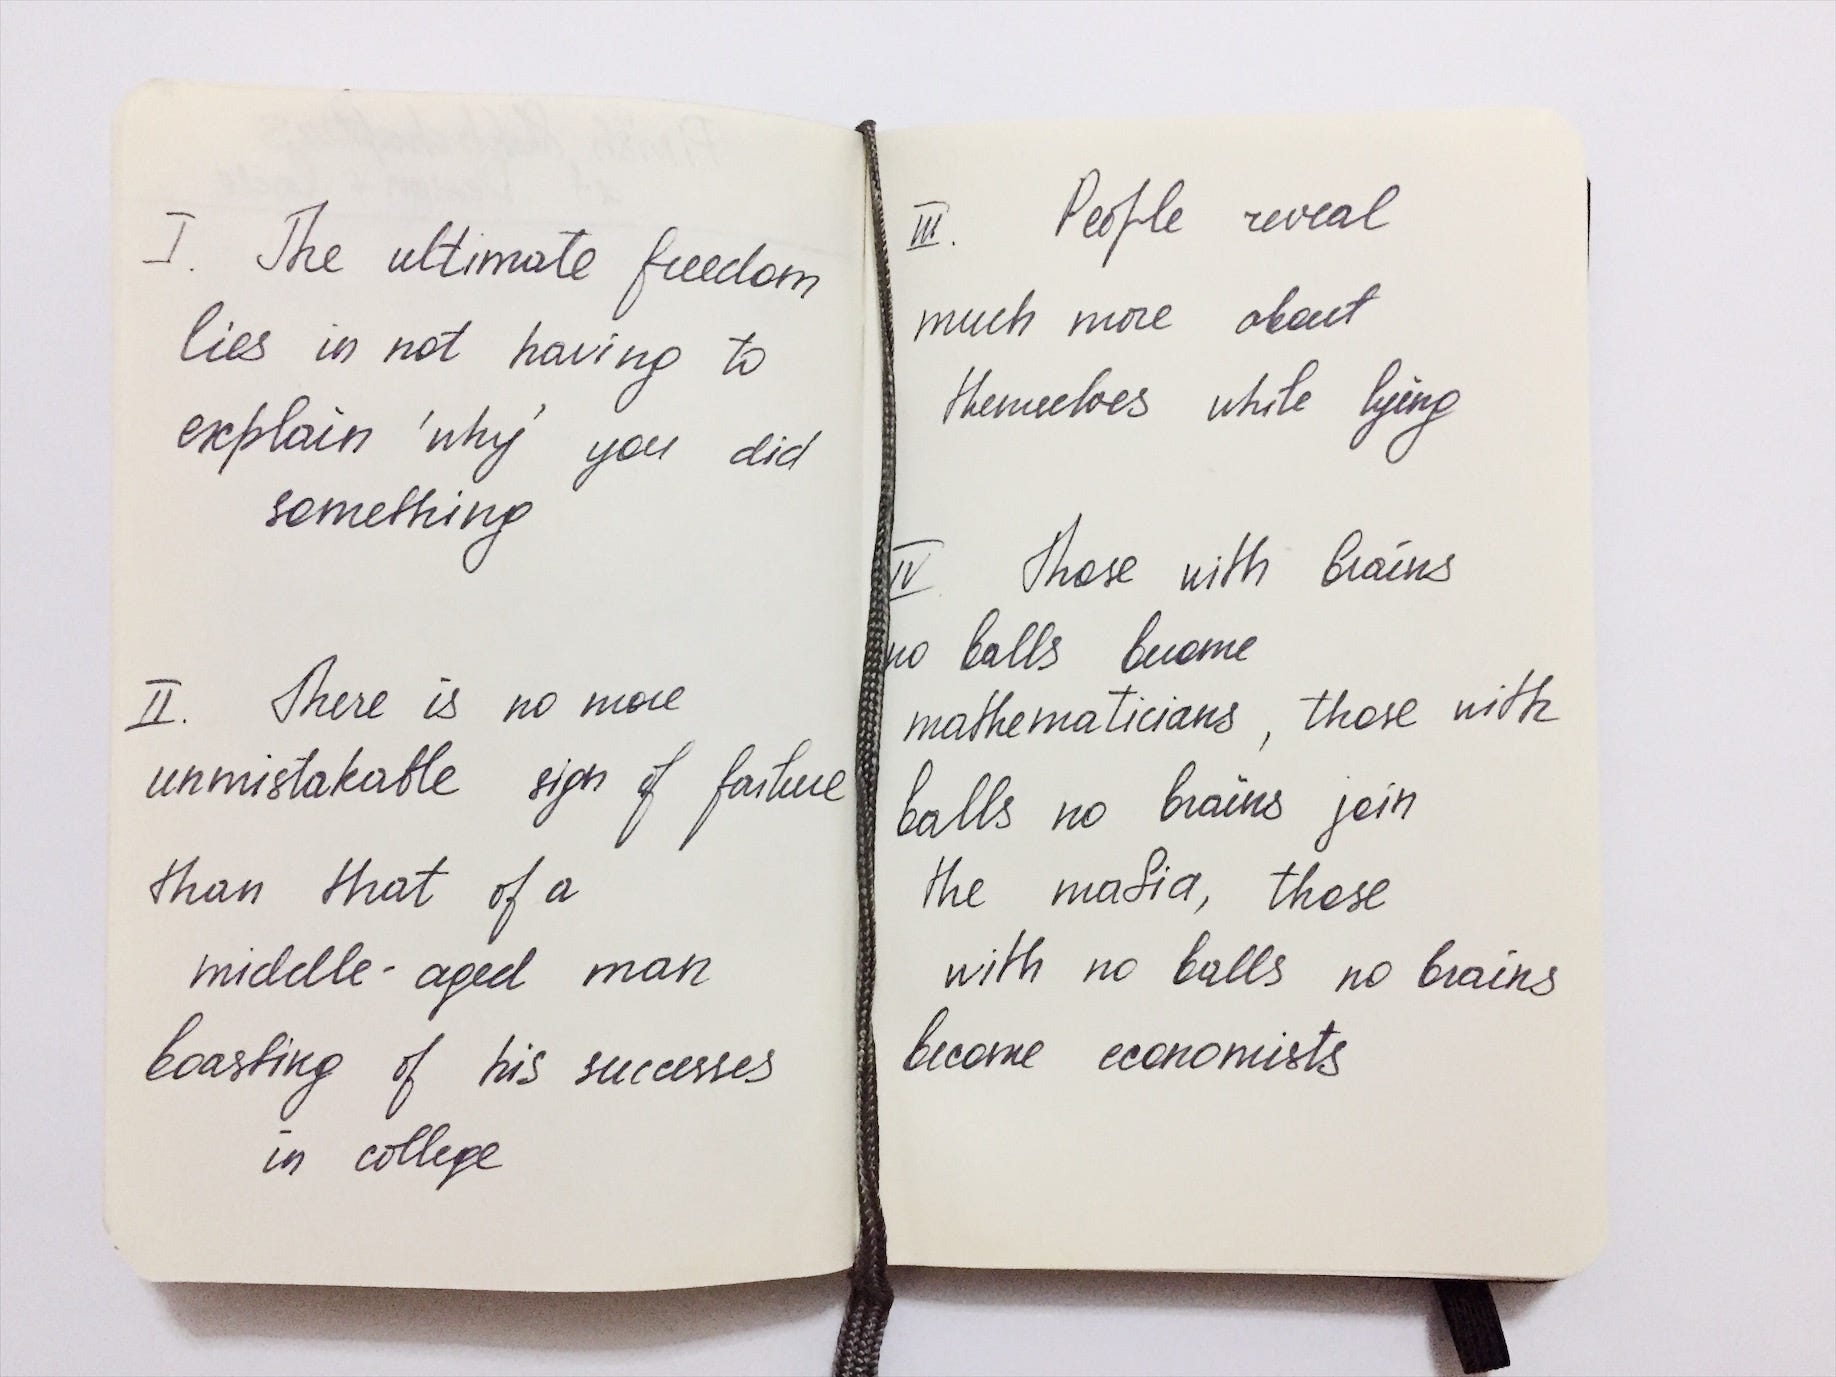 I. The ultimate freedom
lies in not having to
explain 'why' you did
something
II. There is no more
unmistakable sign of failure
than that of a
middle-aged man
boasting of his successes
in college
III. People reveal
much more about
themselves while lying
IV Those with brains
no balls become
mathematicians, those with
balls no brains join
the mafia, those
with no balls no brains
become economists